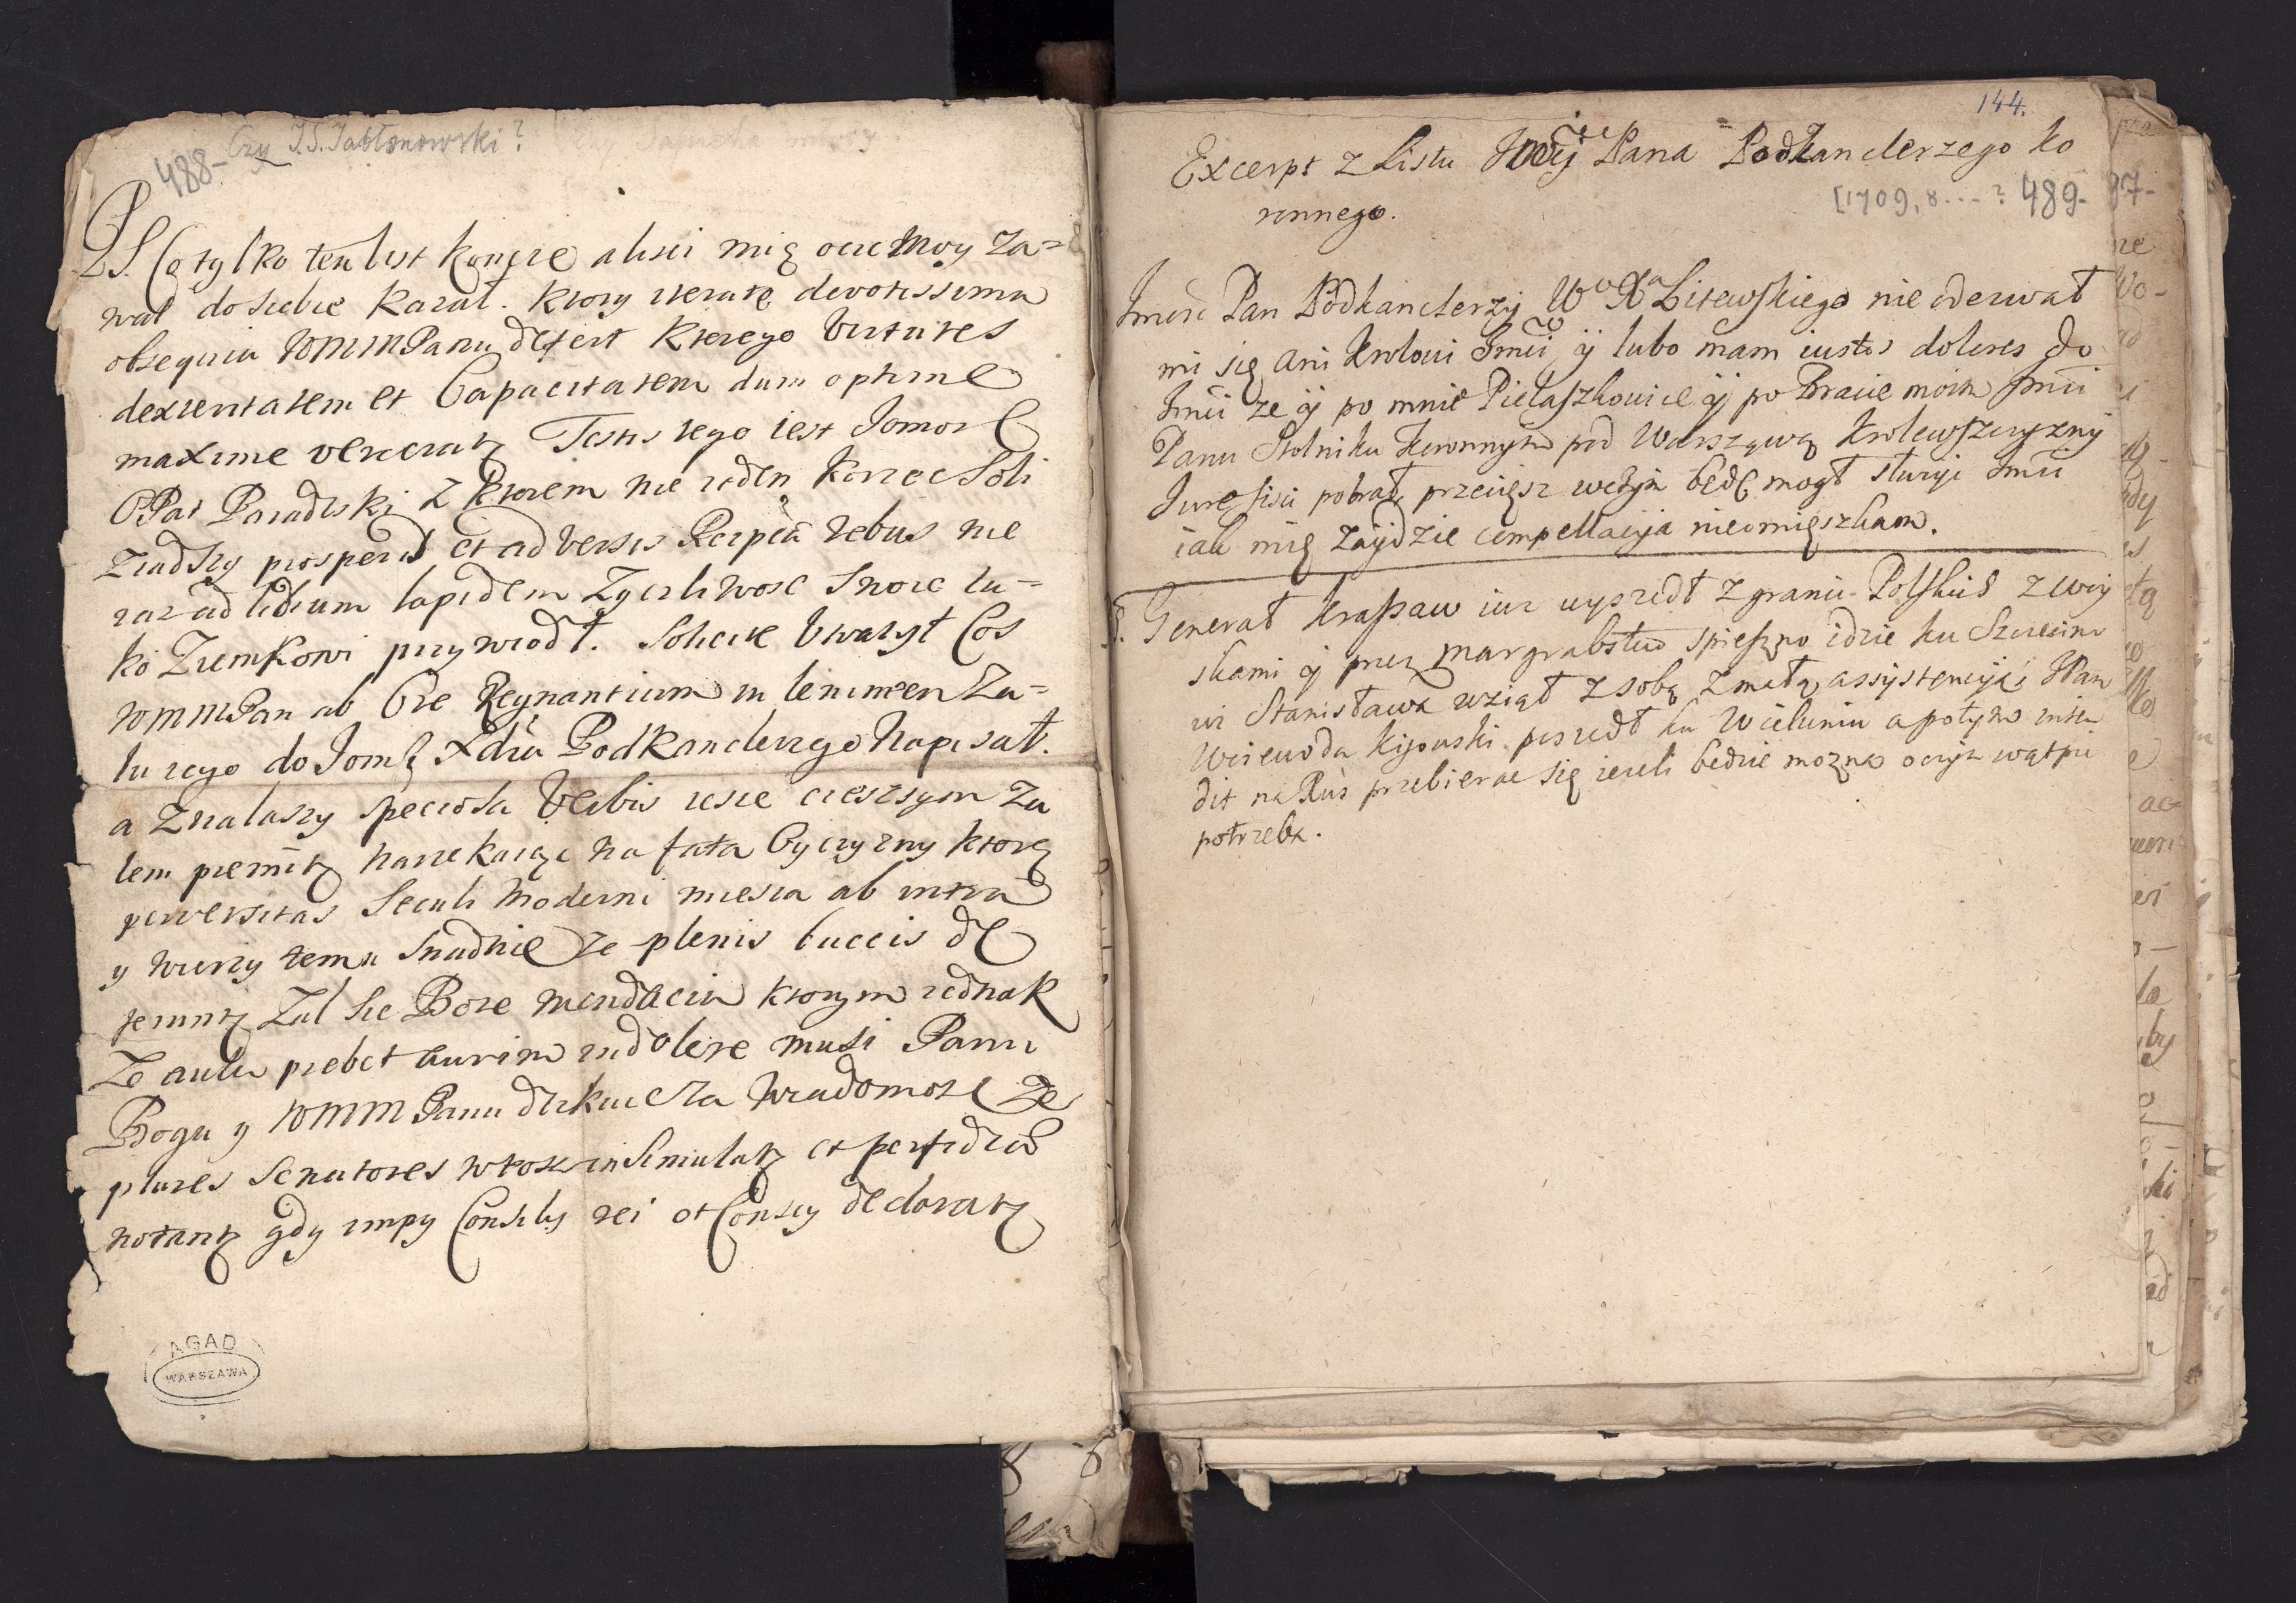 488-
Czy J.S. Jabłonowski?
PS. Co tylko ten list koncze alisci mię ociec moy za=
wał do siebie kazał. Ktory iterate devotissima
obsequia WMMPanu defert Ktorego Virtutes
dexteritatem et Capacitatem dum optime
maxime veneratz Testis tego iest Jomosc
OPat Paradiski z ktorem nie ieden korzec Soli
ziadszy prosperis et adversis Reipcā rebus nie
raz ad lidium lapidem Zyczliwosc Swoie ta=
ko Ziemkowi przywiodł. Solicite Uwazył Cos
WMMPan ab Ore Regnantium in lenimen Za=
lu tego do Jomsci Xdza Podkanclerzego Napisał.
a Znalaszy speciosa Verbis iescie cieszszym Za
lem premitz narzekaiąc na fata Oyczyzny ktorą
perversitas Seculi moderni miesza ab intra
y wierzy temu snadnie ze plenis buccis de
feruntz Zal sie Boze mendacia ktorym iednak
Ze aula prebet aurim indolere musi Panu
Bogu y WMMPanu dziekuie Za Wiadomosc Ze
plures Senatores wtosz insimulatz et perfidiae
notantz gdy impij Consilij rei et Conscij declaratz
AGAD
WARSZAWA
144.
Excerpt z Listu Jmci Pana Podkanclerzego ko
ronnego.
[1709, 8...-? 489-
Jmśc Pan Podkanclerzy W° X^a Litewskiego nie oderwał
mi się ani Krolowi Jmci, ÿ lubo mam iustos dolores do
Jmci ze ÿ po mnie Pielaszkowice ÿ po Bracie moim Jmci
Panu Stolniku Koronnym pod Warszawą Krolewszczyzny
Jure fisci pobrał, przeciesz wczym będę mogł słuzyc Jmci
iak mię zaÿdzie compellacyja nieomięszkam.
Generał Krassaw iuz wyszedł z granic Polskich z woÿ
skami ÿ przez margrabstwo spieszno idzie ku Szczecino
wi Stanisława wziął z sobą z małą assystencyią; JPan
Woiewoda Kijowski poszedł ku Wieluniu a potym inten
dit na Ruś przebierac się iezeli będzie mozna oczym wątpic
potrzeba.